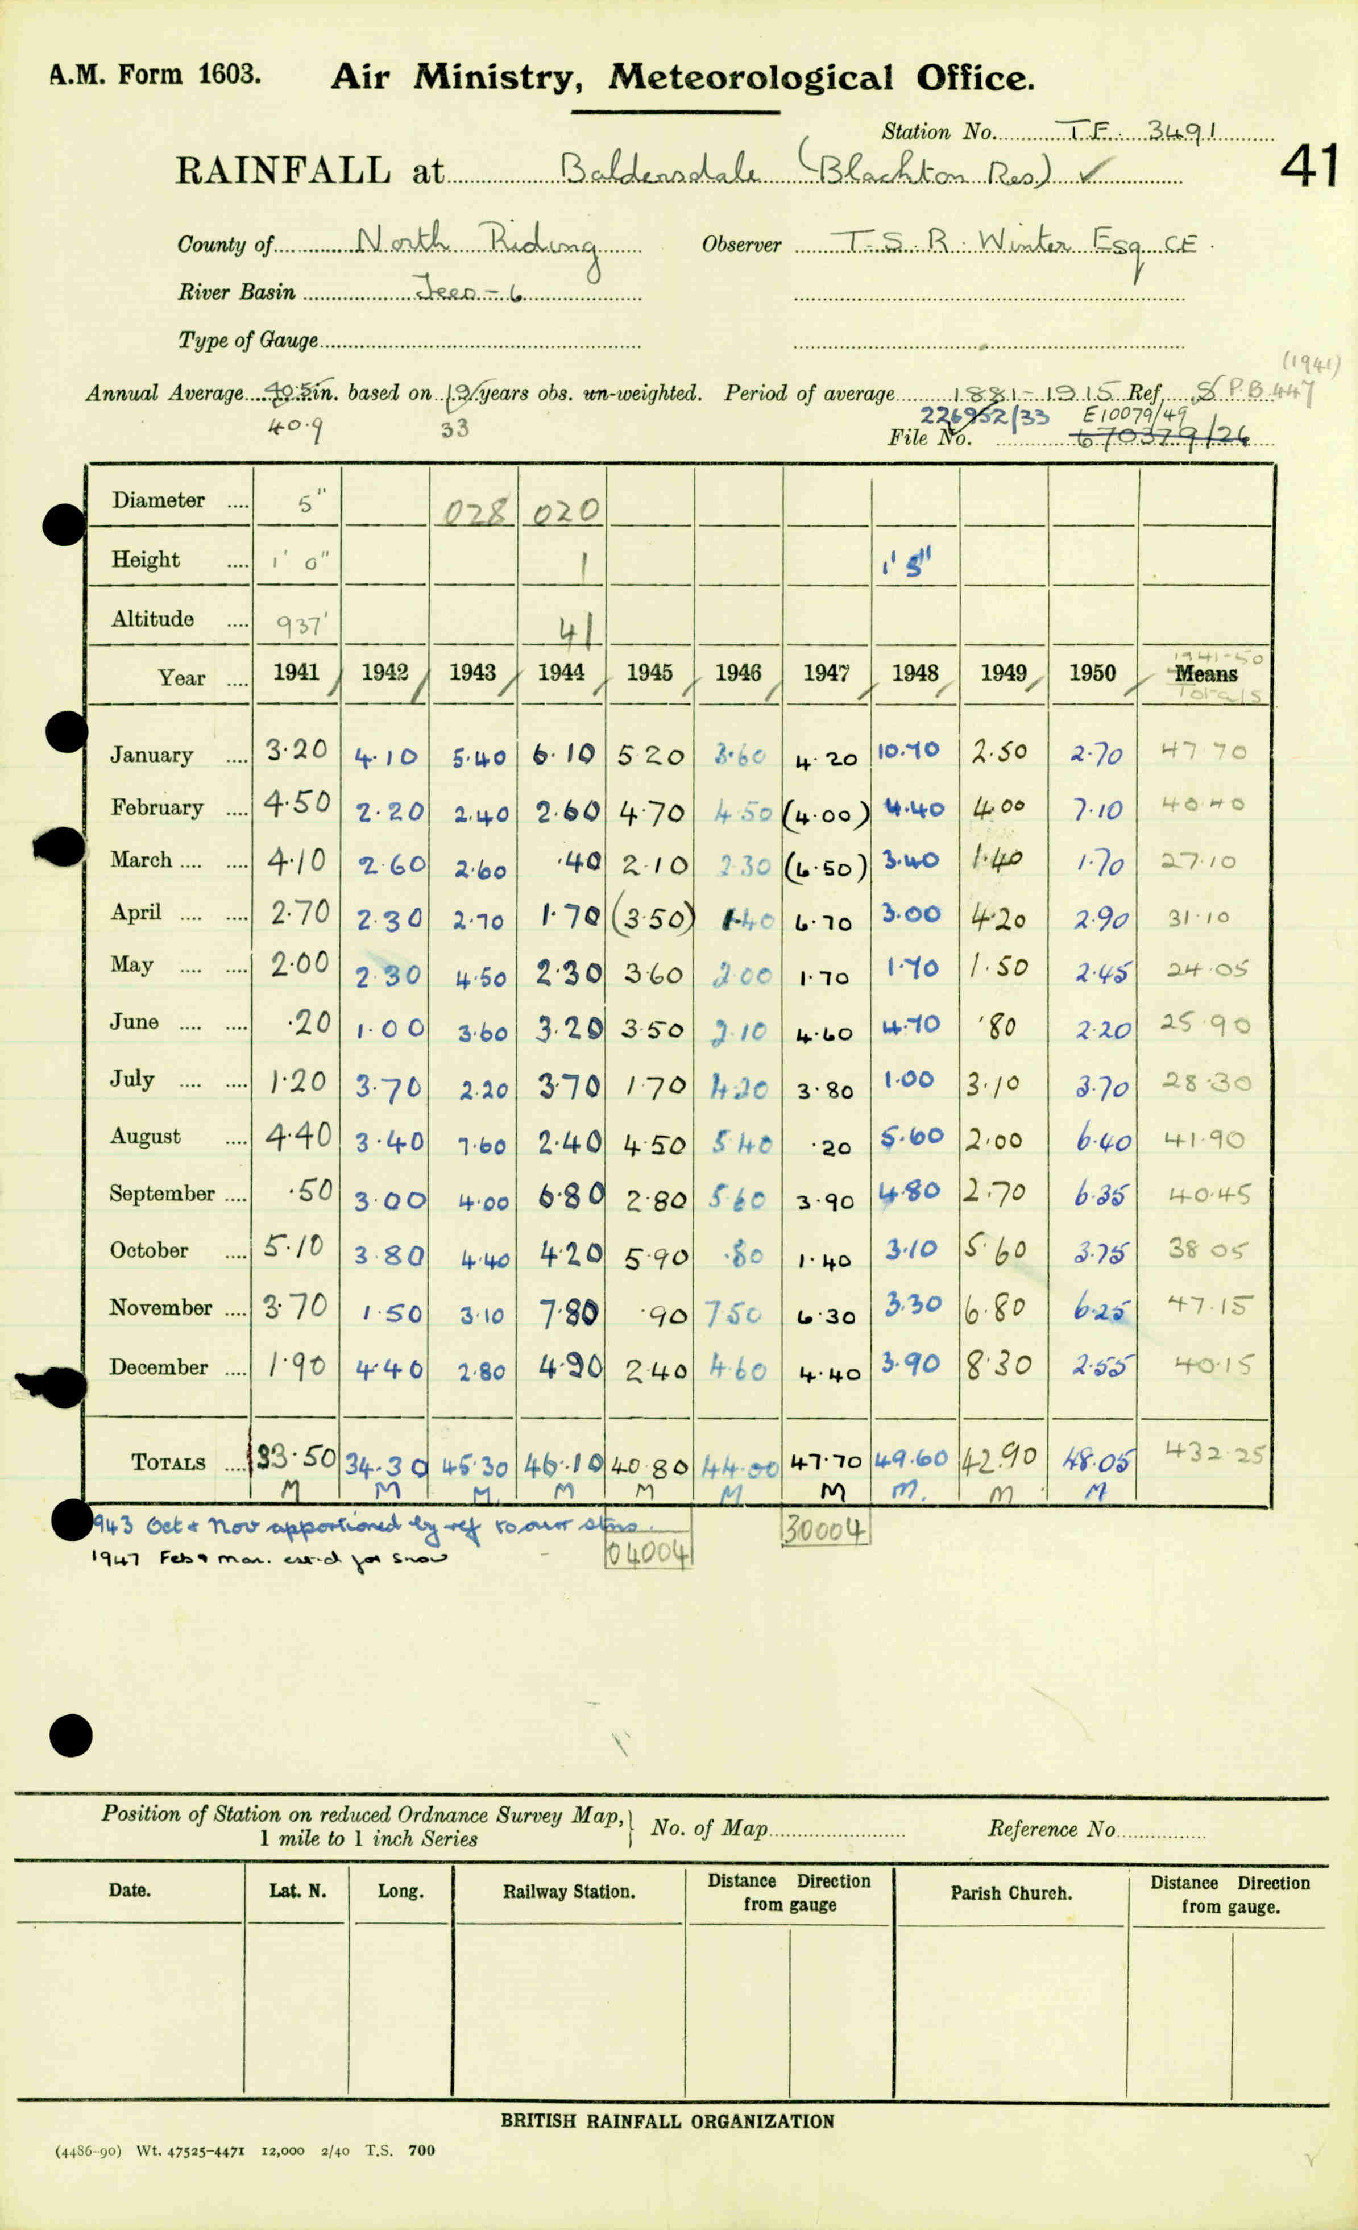 A.M. Form 1603. Air Ministry, Meteorological Office.
Station No. T.F. 3491
RAINFALL at Baldersdale (Blackton Res.) ✓ 41
County of North Riding Observer T.S.R. Winter Esq CE.
River Basin Tees - 6
Type of Gauge
(1941)
Annual Average 40.5 in. based on 19 years obs. un-weighted. Period of average 1881-1915 Ref. S P.B 447
40.9 33 226952/33 E10079/49
File No. 670379/26
Diameter 5" 028 020
Height 1' 0" 1 1' 5"
Altitude 937' 41
1941-50
Year 1941 1942 1943 1944 1945 1946 1947 1948 1949 1950 Means
Totals
January 3.20 4.10 5.40 6.10 5.20 3.60 4.20 10.70 2.50 2.70 47.70
February 4.50 2.20 2.40 2.60 4.70 4.50 (4.00) 4.40 4.00 7.10 40.40
March 4.10 2.60 2.60 .40 2.10 2.30 (6.50) 3.40 1.40 1.70 27.10
April 2.70 2.30 2.70 1.70 (3.50) 1.40 6.70 3.00 4.20 2.90 31.10
May 2.00 2.30 4.50 2.30 3.60 2.00 1.70 1.70 1.50 2.45 24.05
June .20 1.00 3.60 3.20 3.50 2.10 4.60 4.70 .80 2.20 25.90
July 1.20 3.70 2.20 3.70 1.70 4.20 3.80 1.00 3.10 3.70 28.30
August 4.40 3.40 7.60 2.40 4.50 5.40 .20 5.60 2.00 6.40 41.90
September .50 3.00 4.00 6.80 2.80 5.60 3.90 4.80 2.70 6.35 40.45
October 5.10 3.80 4.40 4.20 5.90 .80 1.40 3.10 5.60 3.75 38.05
November 3.70 1.50 3.10 7.80 .90 7.50 6.30 3.30 6.80 6.25 47.15
December 1.90 4.40 2.80 4.90 2.40 4.60 4.40 3.90 8.30 2.55 40.15
TOTALS 33.50 34.30 45.30 46.10 40.80 44.00 47.70 49.60 42.90 48.05 432.25
M M M. M M M M M. M M
943 Oct & Nov apportioned by ref to our stns. 30004
1947 Feb & Mar. est.d for snow 04004
Position of Station on reduced Ordnance Survey Map, 1 mile to 1 inch Series } No. of Map Reference No
Date. Lat. N. Long. Railway Station. Distance Direction from gauge Parish Church. Distance Direction from gauge.
BRITISH RAINFALL ORGANIZATION
(4486-90) Wt. 47525-4471 12,000 2/40 T.S. 700